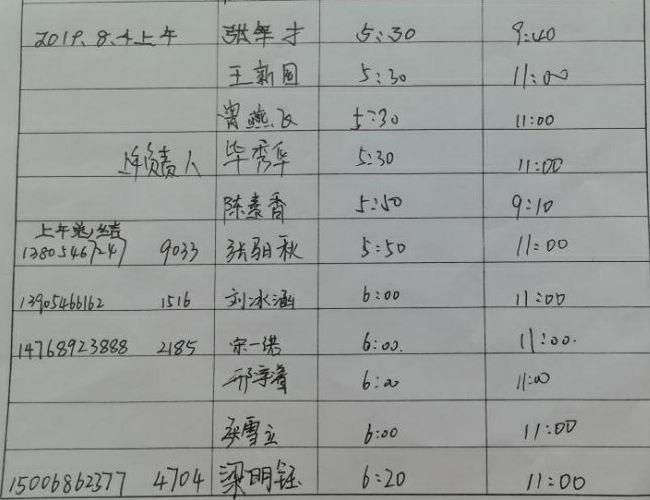 2019.8.4上午 张年才 5:30 9:40
王新国 5:30 11:00
曾燕飞 5:30 11:00
上午负责人 毕秀华 5:30 11:00
陈素香 5:50 9:10
上午总结
13805467247 9033 张钼秋 5:50 11:00
13905466162 1516 刘冰涵 6:00 11:00
14768923888 2185 宋一诺 6:00. 11:00.
邢 6:00 11:00
张雪立 6:00 11:00
15006862377 4704 梁明钰 6:20 11:00